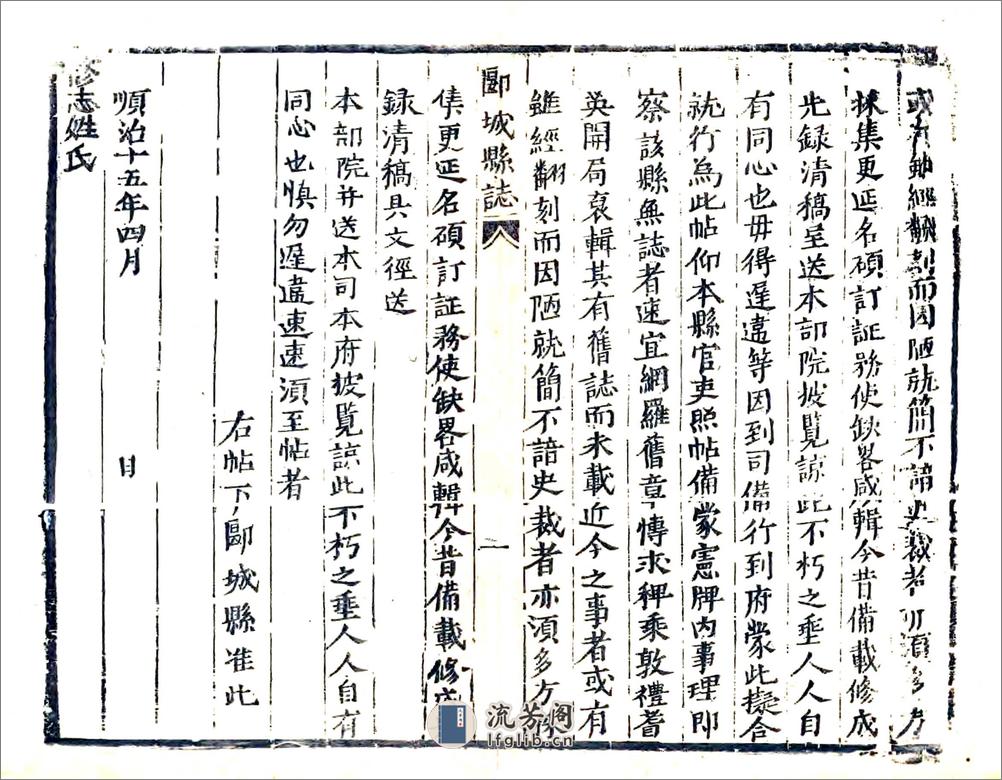 或有雖經翻刻而因陋就簡不諳史裁者亦須多方
採集更延名碩訂証務使缺畧咸輯今昔備載修成
先録清稿呈送本部院披覽諒此不朽之垂人人自
有同心也毋得遲違等因到司備行到府蒙此擬合
就行為此帖仰本縣官吏照帖備蒙憲牌内事理即
察該縣無誌者速宜網羅舊章慱求稗乘敦禮耆
英開局裒輯其有舊誌而未載近今之事者或有
雖經翻刻而因陋就簡不諳史裁者亦湏多方
郾城縣誌 一
集更延名碩訂証務使缺畧咸輯今昔備載修成
録清稿具文徑送
本部院并送本司本府披覧諒此不朽之垂人人自有
同心也慎勿遲違速速湏至帖者
右帖下郾城縣准此
順治十五年四月 日
修志姓氏
流芳阁
lfglib.cn